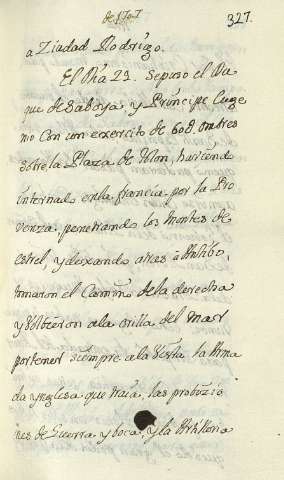 de 1707
327.
a Ziudad Rodrigo.
El Dia 21. Sepuso el Du
que de Saboya y Principe Euge
nio Con un exercito de 60d. ombres
sobre la Plaza de Tolon, haviend
internad enla francia por la Pro
venza penetrando los Montes de
estrel y dexando atras â Antibo,
tomaron el Camin dela derecha
y Volbieron ala orilla del mar
por tener siempre a la Vista la Arma
da ynglesa que traia, las probuzio
nes de Guerra y boca, y la Artilleria